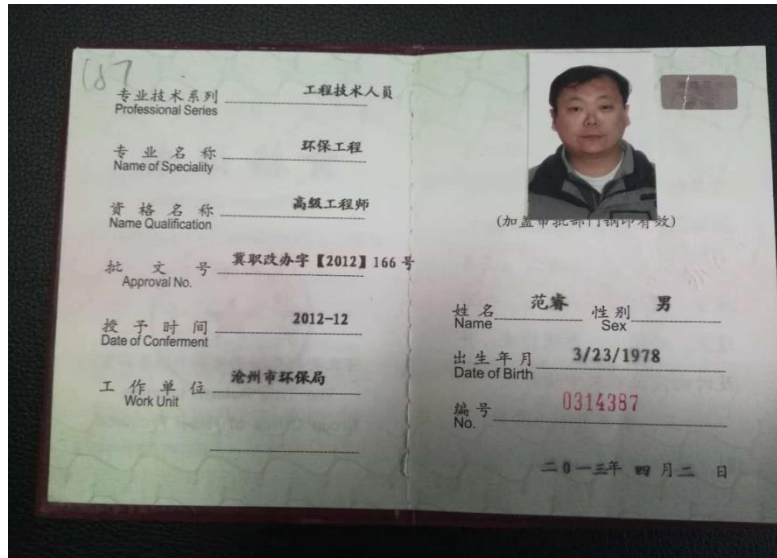 187
专业技术系列 工程技术人员
Professional Series
专业名称 环保工程
Name of Speciality
资格名称 高级工程师
Name Qualification
批文号 冀职改办字【2012】166号
Approval No.
授予时间 2012-12
Date of Conferment
工作单位 沧州市环保局
Work Unit
(加盖审批部门钢印有效)
姓名 范睿 性别 男
Name Sex
出生年月 3/23/1978
Date of Birth
编号 0314387
No.
二0一三年四月二日